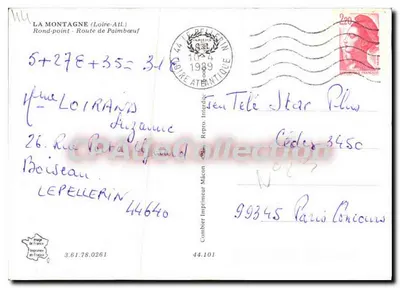 LA MONTAGNE (Loire-Atl.)
Rond-point - Route de Paimbœuf
44 LE PELLERIN
1989
LOIRE ATLANTIQUE
2,20
5+27E+35= 31E
Mme LOIRAND
Suzanne
26. Rue
Boiseau
LEPELLERIN
44640
Jeu Télé Star Plus
Cedex 3450
99345 Paris Concours
Combier Imprimeur Mâcon
Repro. interdite
3.61.78.0261
44.101